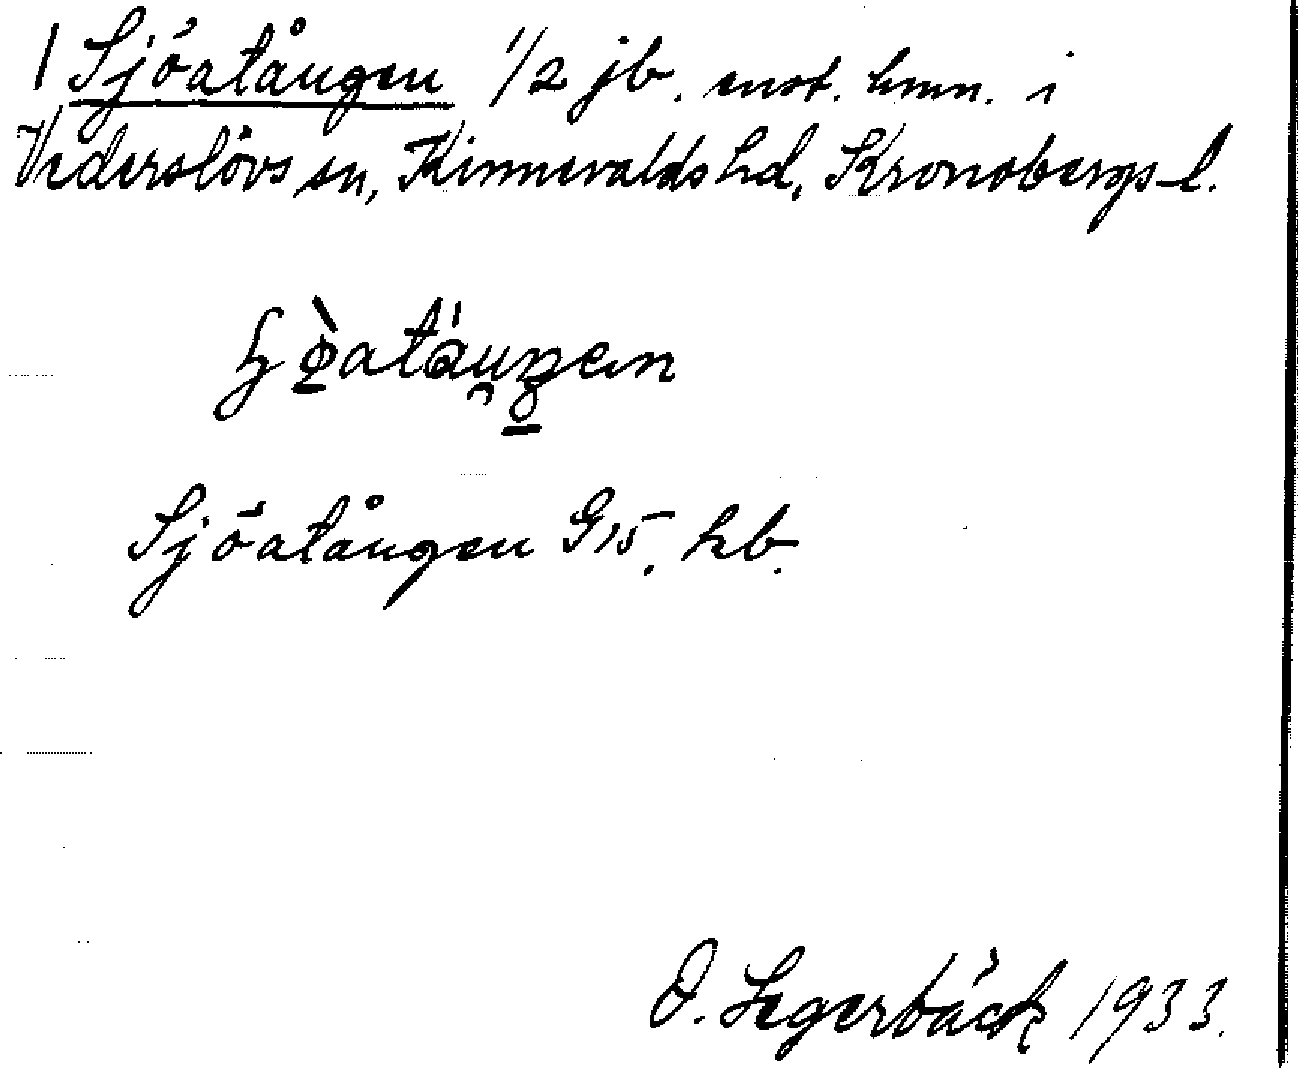 1 Sjöatången 1/2 jb. enst. hmn. i
Vederslövs sn, Kinnevalds hd, Kronobergs l.
Sjöatången G15. hb.
O. Segerbäck 1933.